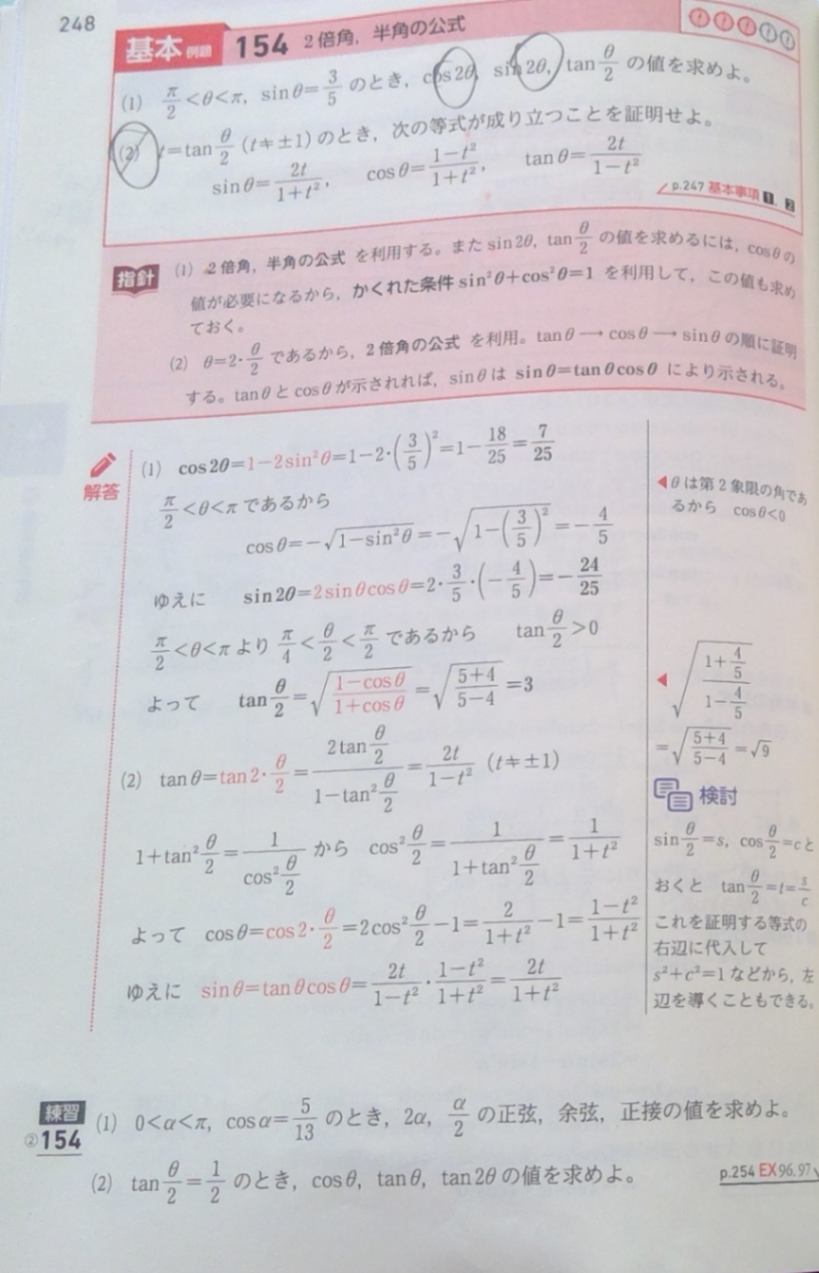 248
基本 例題 154 2倍角，半角の公式
(1) π/2<θ<π, sinθ=3/5 のとき，cos2θ, sin2θ, tan θ/2 の値を求めよ。
(2) t=tan θ/2 (t≠±1) のとき，次の等式が成り立つことを証明せよ。
sinθ=2t/(1+t²), cosθ=(1−t²)/(1+t²), tanθ=2t/(1−t²)
p.247 基本事項 1, 2
指針 (1) 2倍角，半角の公式 を利用する。また sin2θ, tan θ/2 の値を求めるには，cosθ の
値が必要になるから，かくれた条件 sin²θ+cos²θ=1 を利用して，この値も求め
ておく。
(2) θ=2・θ/2 であるから，2倍角の公式 を利用。tanθ → cosθ → sinθ の順に証明
する。tanθ と cosθ が示されれば，sinθ は sinθ=tanθcosθ により示される。
解答
(1) cos2θ=1−2sin²θ=1−2・(3/5)²=1−18/25=7/25
π/2<θ<π であるから
cosθ=−√(1−sin²θ)=−√(1−(3/5)²)=−4/5
ゆえに sin2θ=2sinθcosθ=2・3/5・(−4/5)=−24/25
π/2<θ<π より π/4<θ/2<π/2 であるから tan θ/2>0
よって tan θ/2=√((1−cosθ)/(1+cosθ))=√((5+4)/(5−4))=3
(2) tanθ=tan2・θ/2=(2tan θ/2)/(1−tan² θ/2)=2t/(1−t²) (t≠±1)
1+tan² θ/2=1/(cos² θ/2) から cos² θ/2=1/(1+tan² θ/2)=1/(1+t²)
よって cosθ=cos2・θ/2=2cos² θ/2−1=2/(1+t²)−1=(1−t²)/(1+t²)
ゆえに sinθ=tanθcosθ=2t/(1−t²)・(1−t²)/(1+t²)=2t/(1+t²)
◀θ は第2象限の角であ
るから cosθ<0
◀√((1+4/5)/(1−4/5))
=√((5+4)/(5−4))=√9
検討
sin θ/2=s, cos θ/2=c と
おくと tan θ/2=t=s/c
これを証明する等式の
右辺に代入して
s²+c²=1 などから，左
辺を導くこともできる。
練習 ②154 (1) 0<α<π, cosα=5/13 のとき，2α, α/2 の正弦，余弦，正接の値を求めよ。
(2) tan θ/2=1/2 のとき，cosθ, tanθ, tan2θ の値を求めよ。
p.254 EX 96, 97